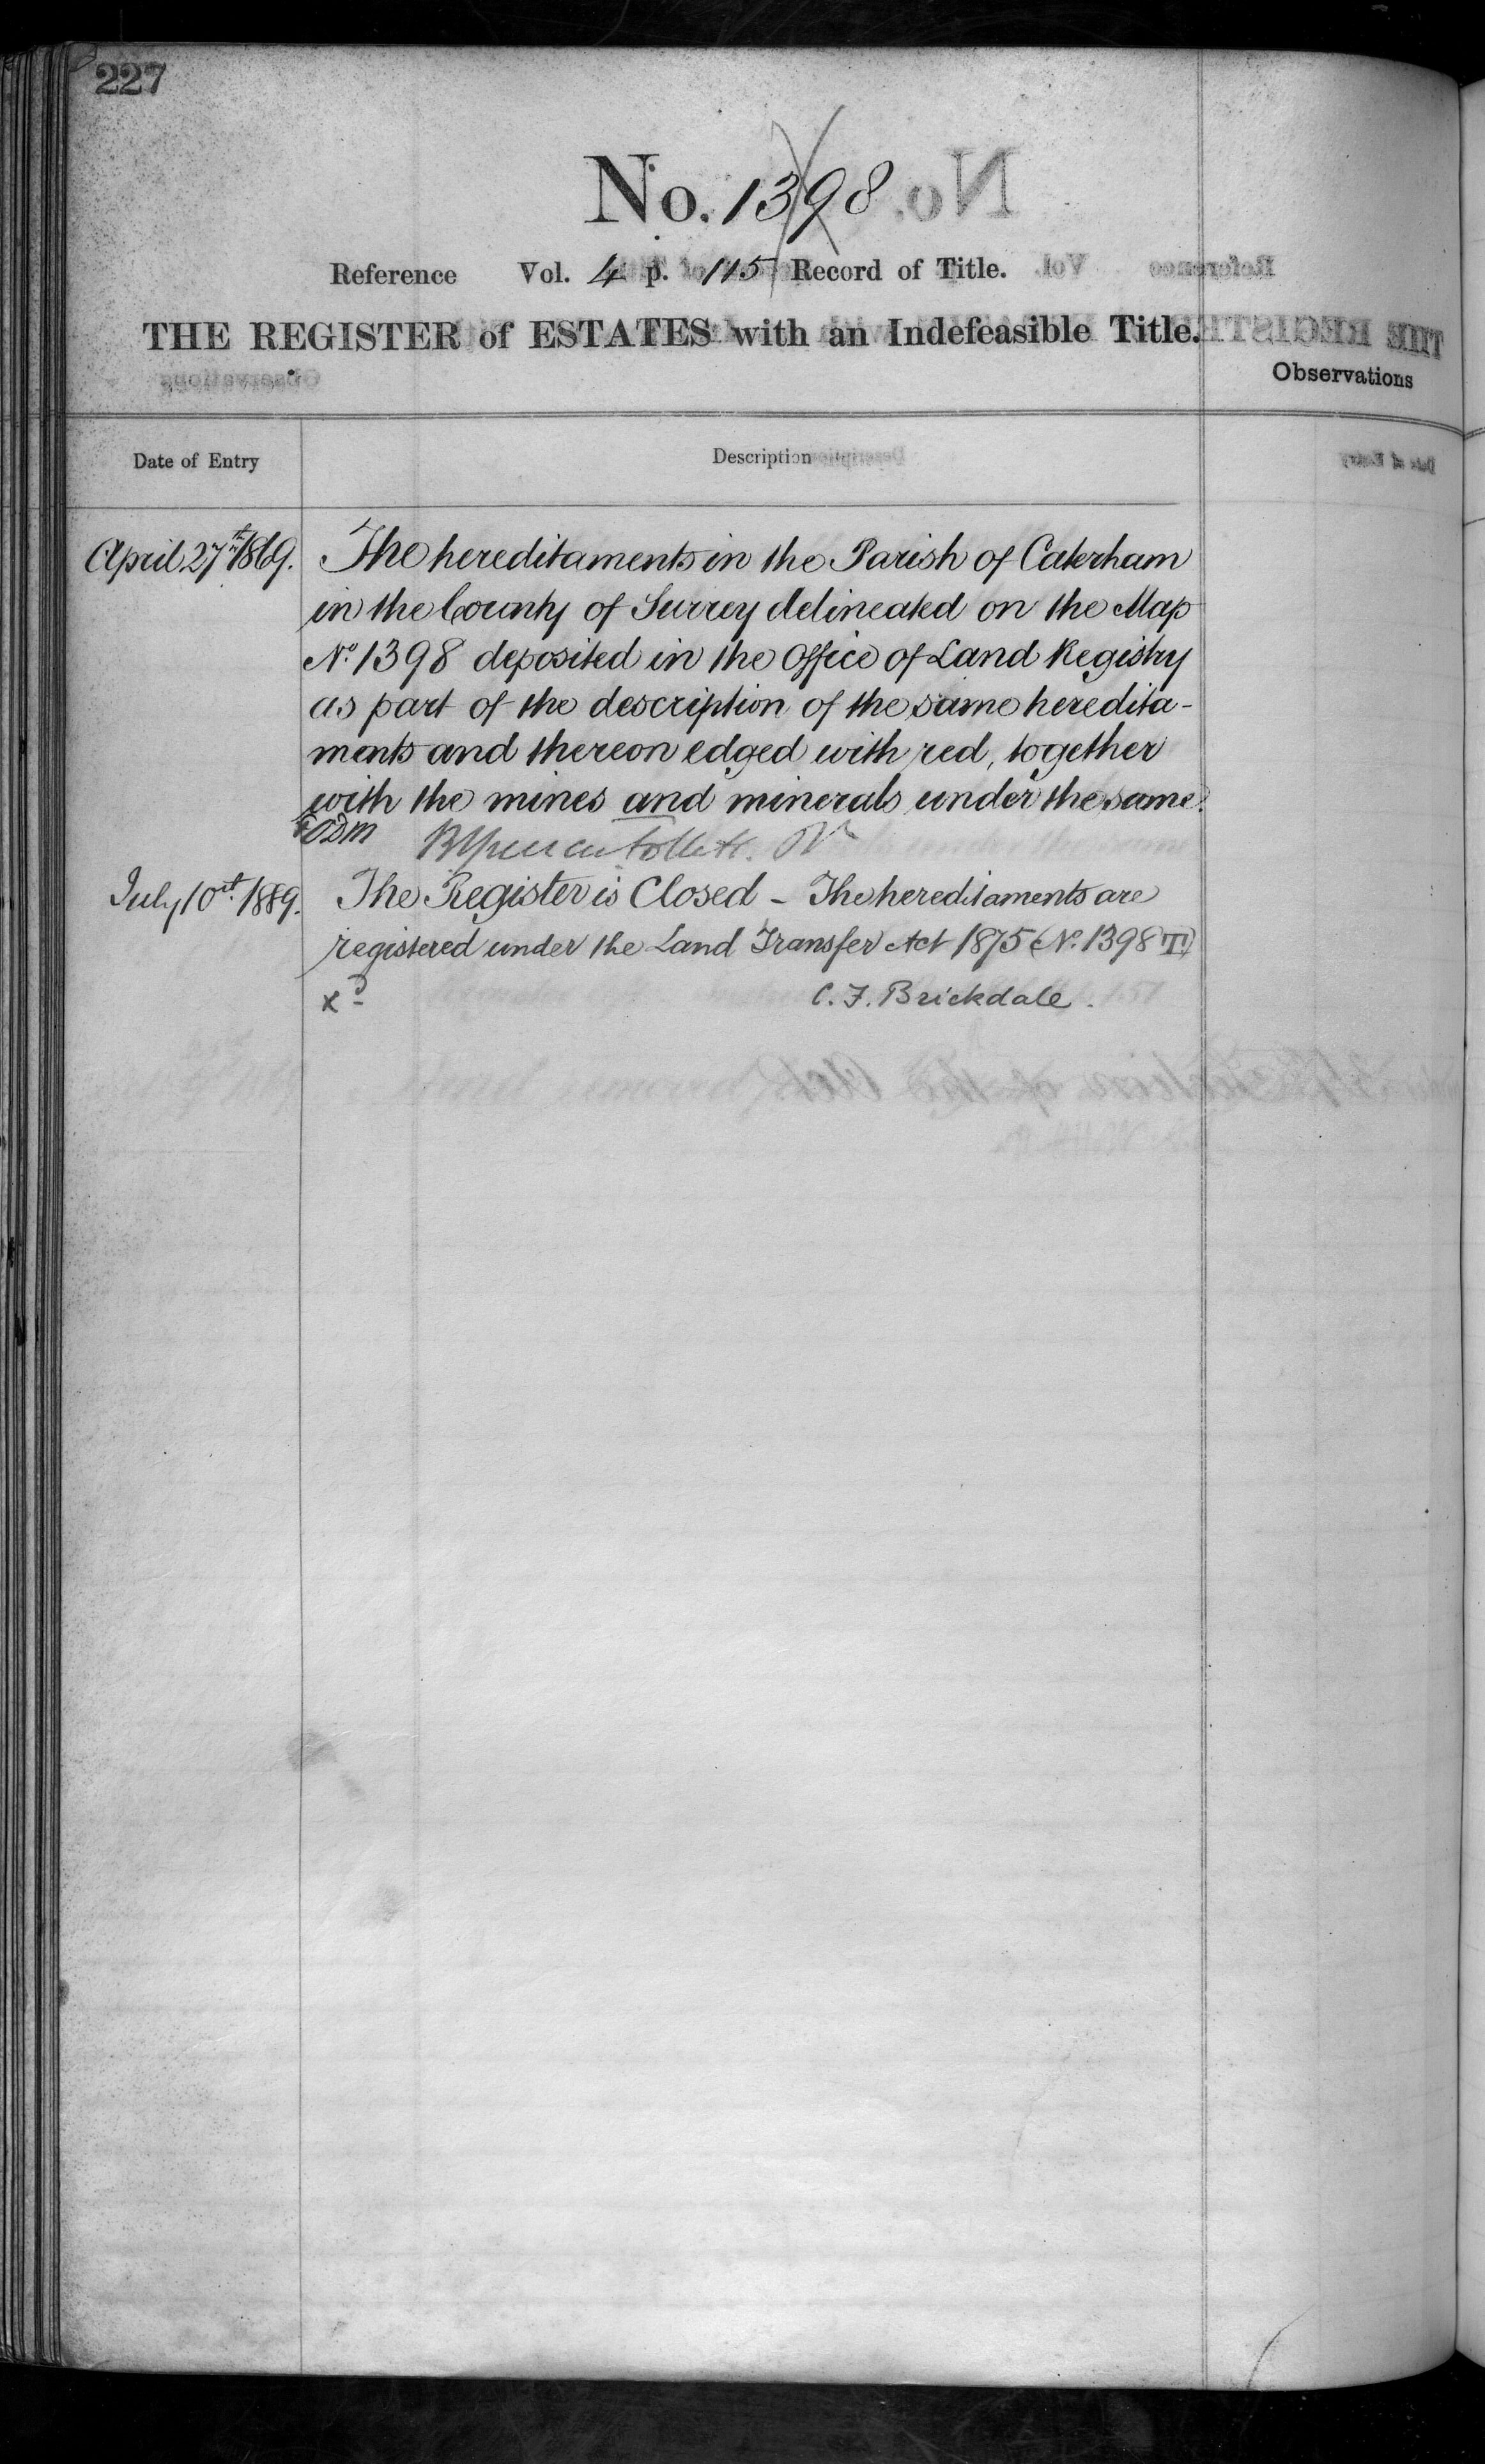 227
No. 1398
Reference Vol. 4 p. 115 Record of Title.
THE REGISTER of ESTATES with an Indefeasible Title.
Observations
Date of Entry Description
April 27th 1869. The hereditaments in the Parish of Caterham
in the County of Surrey delineated on the Map
No. 1398 deposited in the Office of Land Registry
as part of the description of the same heredita-
ments and thereon edged with red, together
with the mines and minerals under the same.
July 10th 1889. The Register is Closed - The hereditaments are
registered under the Land Transfer Act 1875 (No. 1398 T)
C. F. Brickdale.